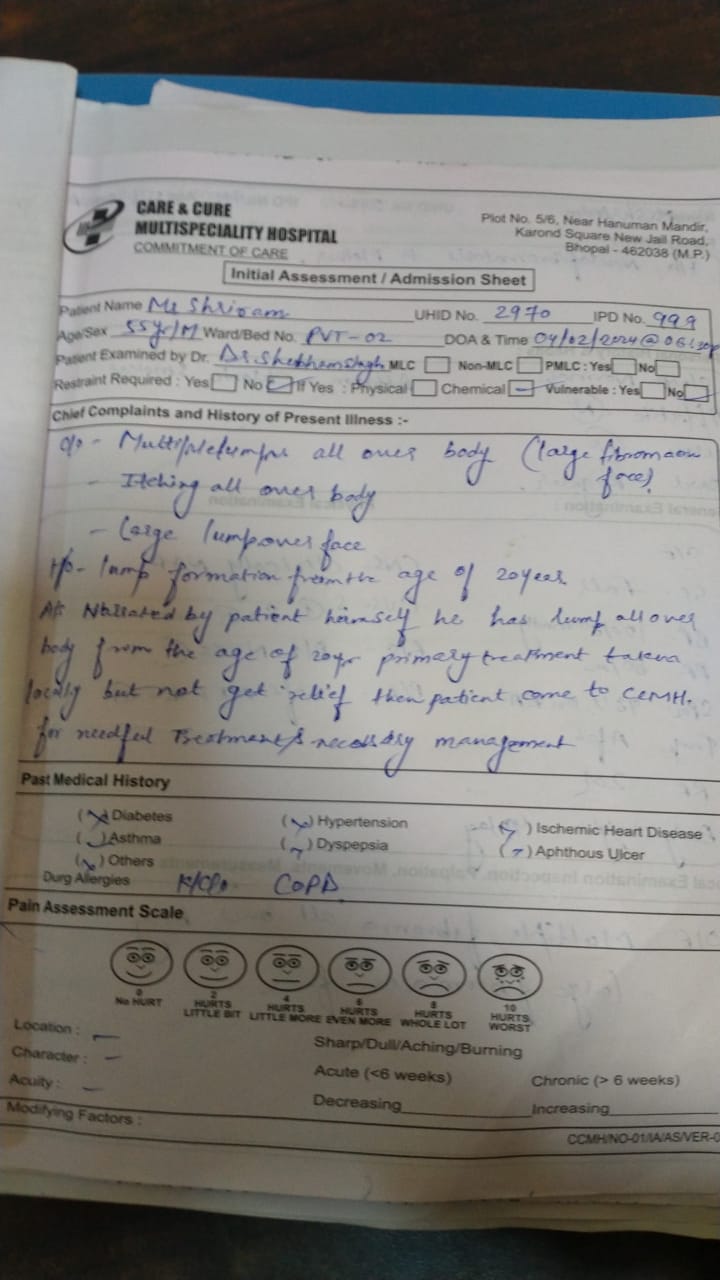 CARE & CURE
MULTISPECIALITY HOSPITAL
COMMITMENT OF CARE
Plot No. 5/6, Near Hanuman Mandir,
Karond Square New Jail Road,
Bhopal - 462038 (M.P.)
Initial Assessment / Admission Sheet
Patient Name Mr Shriram UHID No. 2970 IPD No. 999
Age/Sex 55yr/M Ward/Bed No. PVT-02 DOA & Time 04/02/2024 @ 06:
Patient Examined by Dr. MLC Non-MLC PMLC : Yes No
Restraint Required : Yes No If Yes : Physical Chemical Vulnerable : Yes No
Chief Complaints and History of Present Illness :-
c/o - Multiple lumps all over body (large fibroma on
face)
- Itching all over body
- Large lump over face
H/o - lump formation from the age of 20 year.
As Narrated by patient himself he has lump all over
body from the age of 20yr primary treatment taken
locally but not get relief then patient come to CCMH.
for needful Treatment & necessary management
Past Medical History
Diabetes Hypertension Ischemic Heart Disease
Asthma Dyspepsia Aphthous Ulcer
Others
Durg Allergies K/C/o. COPD.
Pain Assessment Scale
0 2 4 6 8 10
No HURT HURTS LITTLE BIT HURTS LITTLE MORE HURTS EVEN MORE HURTS WHOLE LOT HURTS WORST
Location : -
Sharp/Dull/Aching/Burning
Character : -
Acute (<6 weeks) Chronic (> 6 weeks)
Acuity : -
Decreasing Increasing
Modifying Factors :
CCMH/NO-01/IA/AS/VER-0